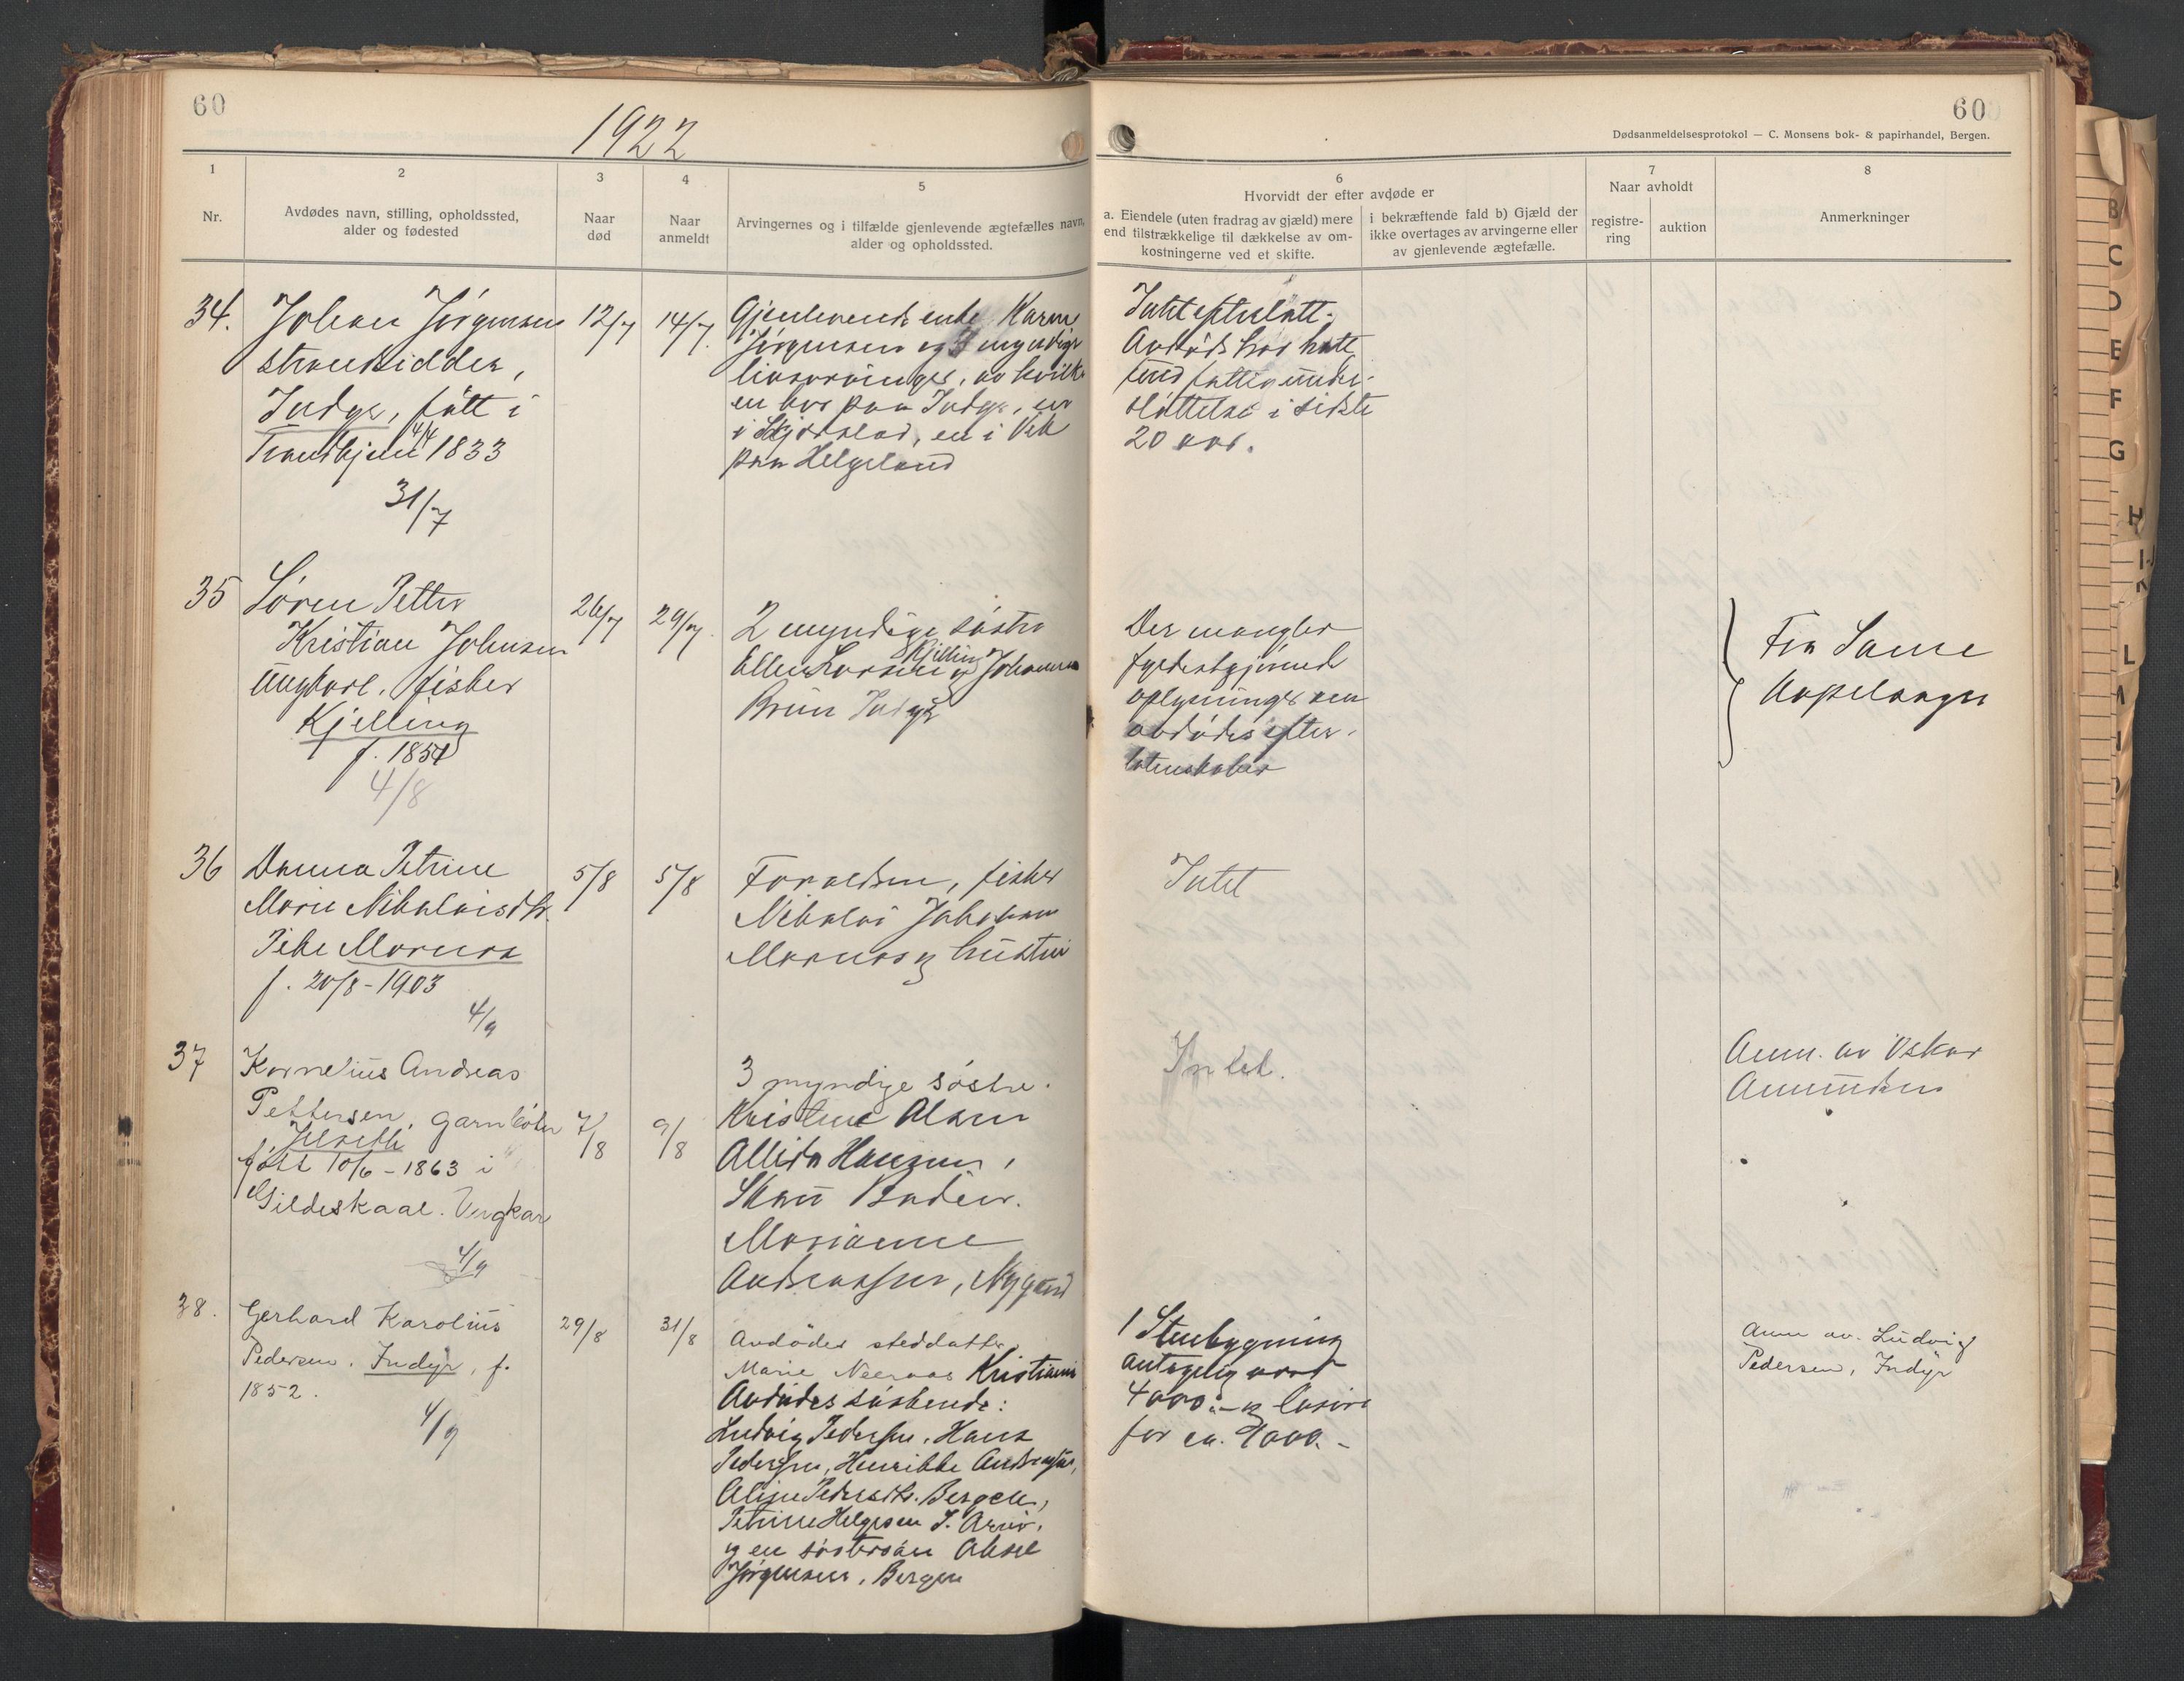 60
1922
60
Dødsanmeldelsesprotokol — C. Monsens bok- & papirhandel, Bergen.
1
Nr.
2
Avdødes navn, stilling, opholdssted,
alder og fødested
3
Naar
død
4
Naar
anmeldt
5
Arvingernes og i tilfælde gjenlevende ægtefælles navn,
alder og opholdssted.
6
Hvorvidt der efter avdøde er
a. Eiendele (uten fradrag av gjæld) mere
end tilstrækkelige til dækkelse av om-
kostningerne ved et skifte.
i bekræftende fald b) Gjæld der
ikke overtages av arvingerne eller
av gjenlevende ægtefælle.
7
Naar avholdt
registre-
ring
auktion
8
Anmerkninger
34.
Johan Jörgensen
strandsidder,
Indyr, fött i
Trondhjem 4/4 1833
31/7
12/7
14/7.
Gjenlevende enke Karen
Jörgensen og 3 myndige
livsarvinger, av hvilke
en bor paa Indyr, en
i Skjerstad, en i Vik
paa Helgeland
Intet efterlatt.
Avdöde har hatt
fuld fattigunder-
støttelse i sidste
20 aar.
35
Sören Petter
Kristian Johnsen
ungkarl, fisker
Kjelling
f. 1854
4/8
26/7
29/7.
2 myndige søstre
Ellen Larsen Kjelling og Johanna
Brun Indyr
Der mangler
fyldestgjörende
oplysninger om
avdödes efter-
latenskaber
Fra Same
36
Danna Petrine
Marie Nikolaisdtr.
Pike Mornes
f. 20/8-1903
4/9
5/8
5/8
Foraeldrene, fisker
Nikolai Johansen
Mornes og hustru
Intet
37
Kornelius Andreas
Pettersen, garnböter
født 10/6-1863 i
Gildeskaal. Ungkar
4/9
7/8
9/8
3 myndige søstre.
Kristine Olsen
Allida Hansen,
Skau Bodin.
Marianne
Andreassen, Nygaard
Intet.
Anm. av Oskar
Amundsen
38.
Gerhard Karolius
Pedersen. Indyr, f.
1852.
4/9
29/8
31/8
Avdödes steddatter
Marie Neeraas Kristiania
Avdödes søskende:
Ludvig Pedersen, Hans
Pedersen, Henrikke Andreassen,
Aline Pedersdtr. Bergen,
Petrine Helgesen S. Arnö,
og en søstersøn Aksel
Jörgensen, Bergen
1 Stuebygning
antagelig værd
4000:- og lösöre
for ca. 1000.-
Anm av. Ludvig
Pedersen, Indyr
B
C
D
E
F
G
H
I
K
L